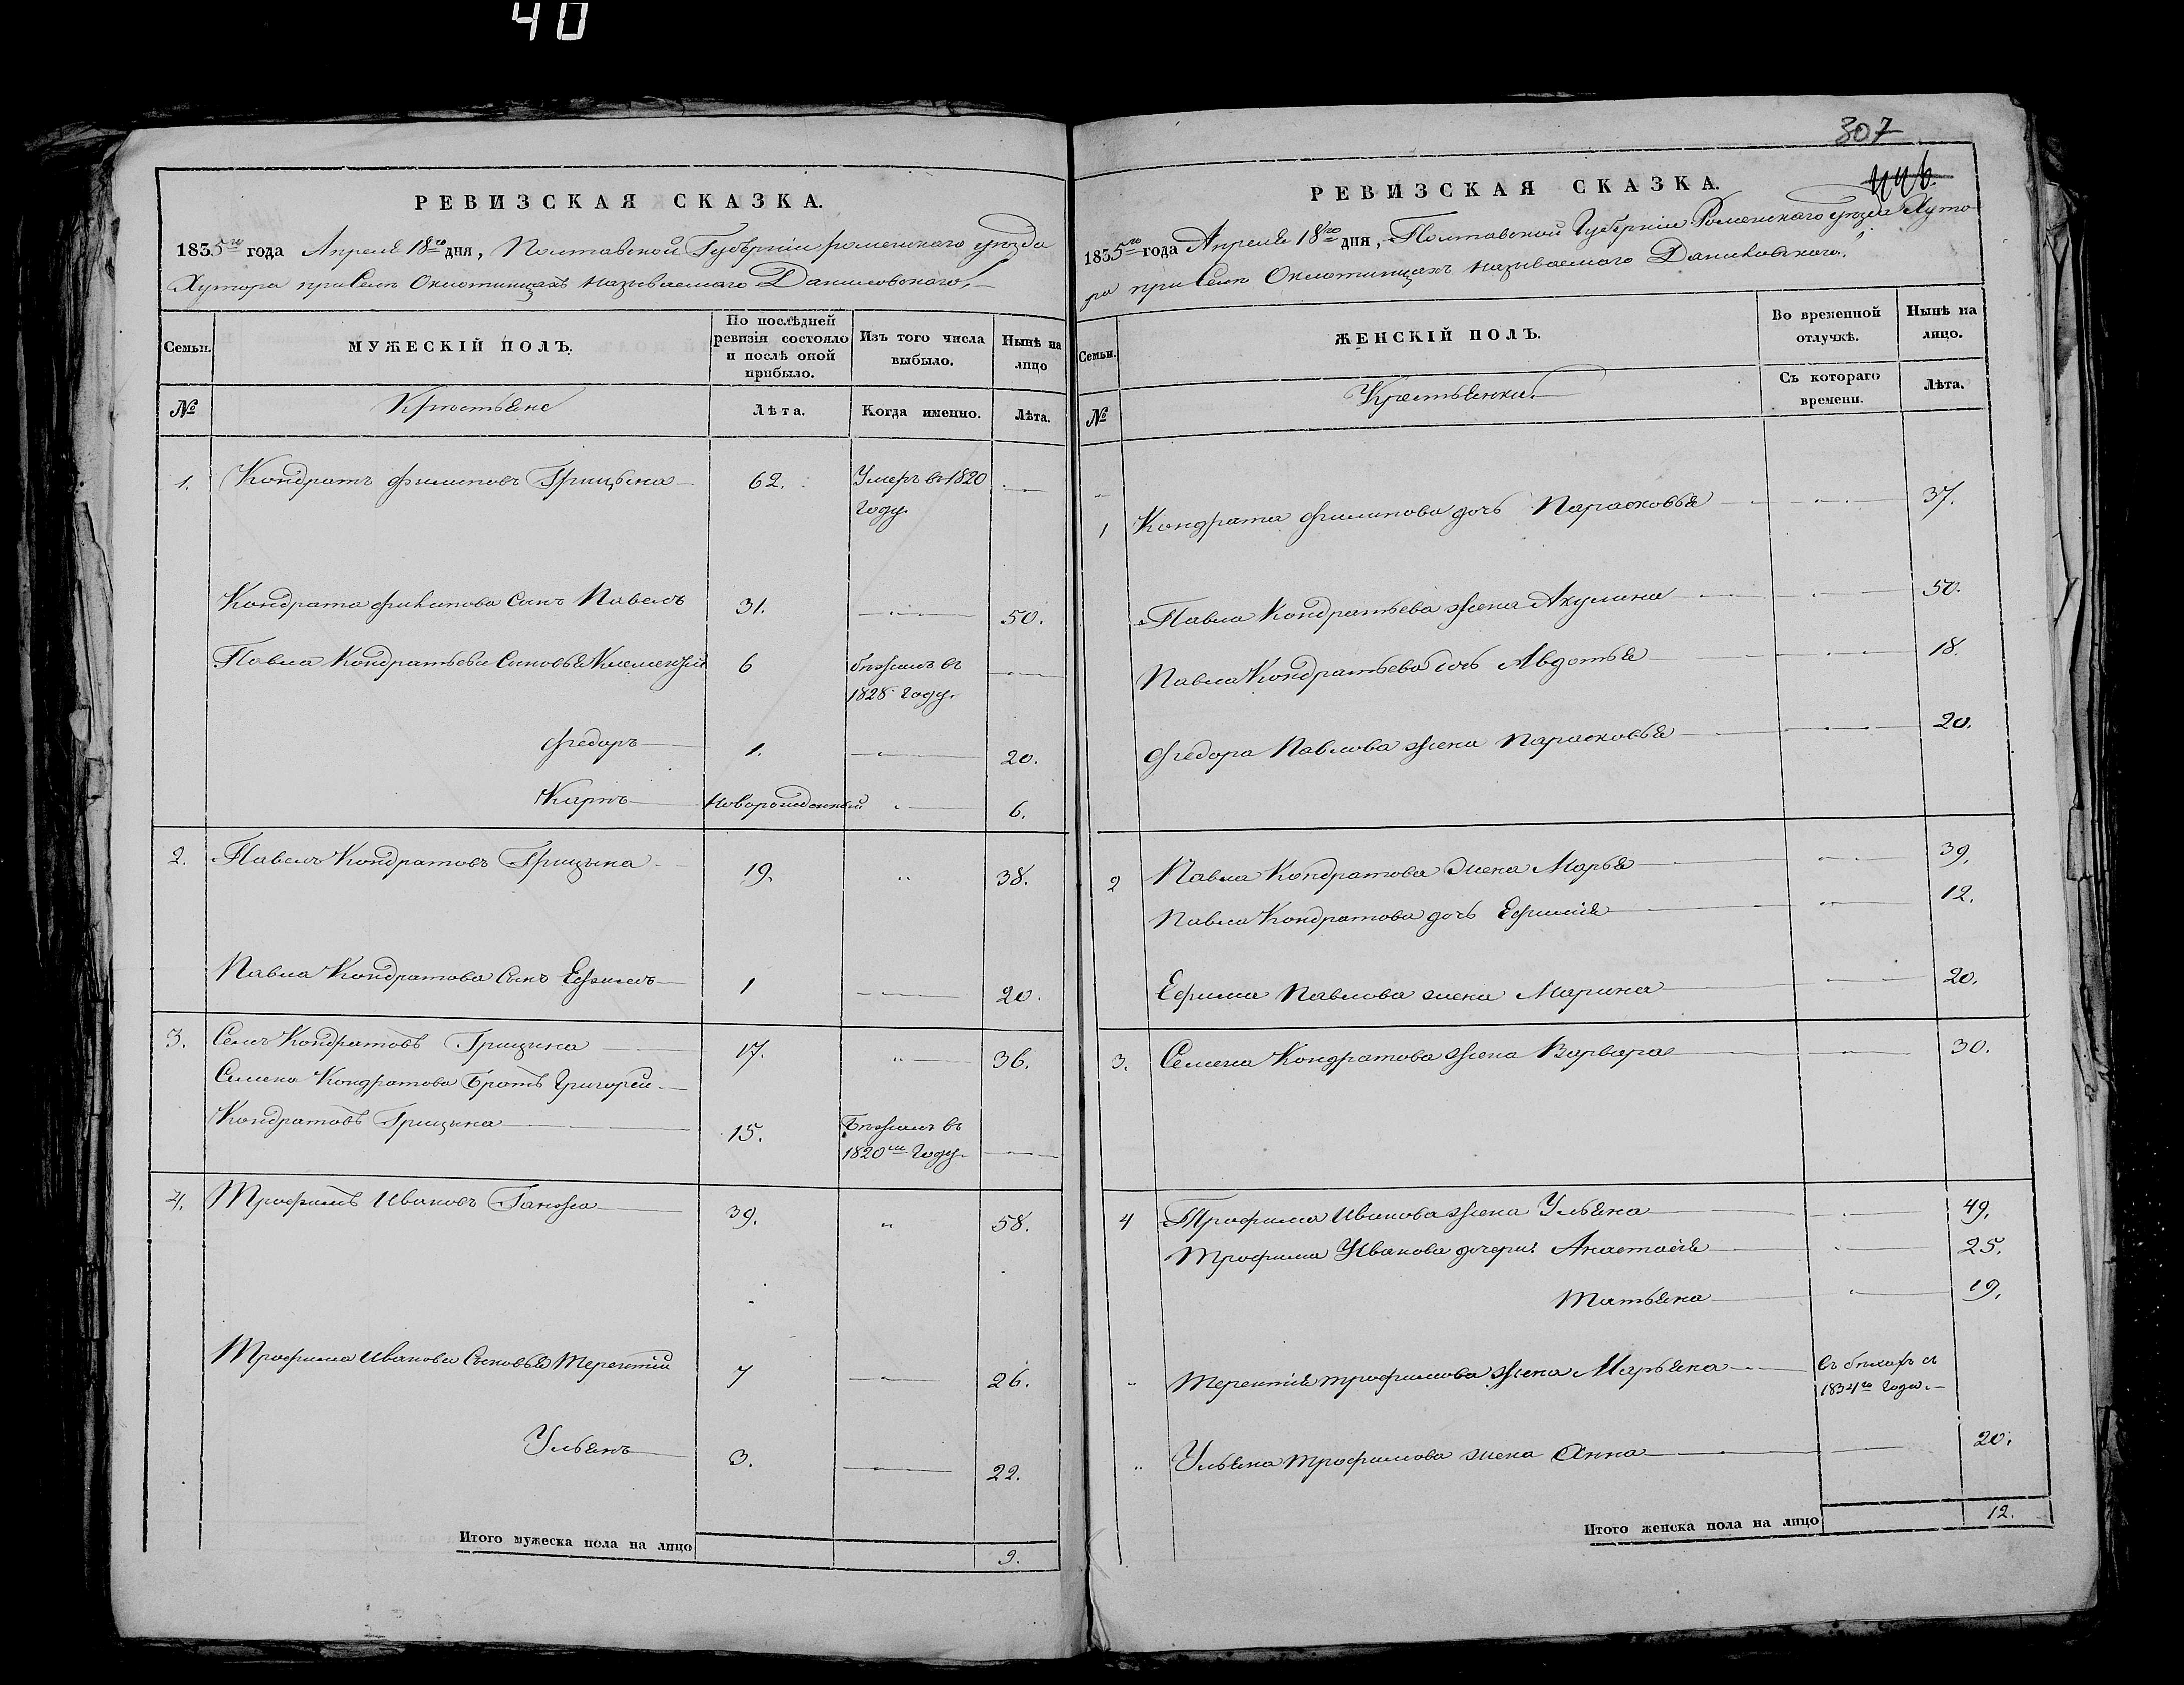 40
РЕВИЗСКАЯ СКАЗКА.
1835го года Апреля 18го дня, Полтавской Губерніи роменскаго уезда
Хутора при селе Оксютинцахъ называемаго Даниловскаго.
Семьи. МУЖЕСКІЙ ПОЛЪ. По послѣдней ревизіи состояло и послѣ оной прибыло. Изъ того числа выбыло. Нынѣ на лицо
№ Крестьяне Лѣта. Когда именно. Лѣта.
1. Кондратъ Филиповъ Грицына 62. Умеръ в 1820
году.
Кондрата Филипова Сынъ Павелъ 31. 50.
Павла Кондратьева Сыновья Климентий 6 бежалъ въ
1828 году.
Федоръ 1. 20.
Карпъ новорожденный 6.
2. Павелъ Кондратовъ Грицына 19. " 38.
Павла Кондратова Сынъ Ефимъ 1 20.
3. Семенъ Кондратовъ Грицына 17. " 36.
Семена Кондратова Братъ Григорей
Кондратовъ Грицына 15. Бежалъ въ
1820м году.
4. Трофимъ Ивановъ Ганжа 39. " 58.
Трофима Иванова Сыновья Терентий 7 26.
Ульянъ 3. 22.
Итого мужеска пола на лицо 9.
307
446.
РЕВИЗСКАЯ СКАЗКА.
1835го года Апреля 18го дня, Полтавской Губерніи Роменскаго уезда Хуто
ра при селе Оксютинцахъ называемаго Даниловскаго.
Семьи. ЖЕНСКІЙ ПОЛЪ. Во временной отлучкѣ. Нынѣ на лицо.
№ Крестьянки. Съ котораго времени. Лѣта.
1 Кондрата Филипова дочь Парасковья 37.
Павла Кондратьева жена Акулина 50.
Павла Кондратьева дочь Авдотья 18.
Федора Павлова жена Парасковья 20.
2 Павла Кондратова жена Марья 39.
Павла Кондратова дочь Ефимия 12.
Ефима Павлова жена Марина 20.
3. Семена Кондратова жена Варвара 30.
4 Трофима Иванова жена Ульяна 49.
Трофима Иванова дочери: Анастасия 25.
Татьяна 19.
" Терентия Трофимова жена Марьяна Въ бегахъ съ
1834го года.
" Ульяна Трофимова жена Анна 20.
Итого женска пола на лицо 12.